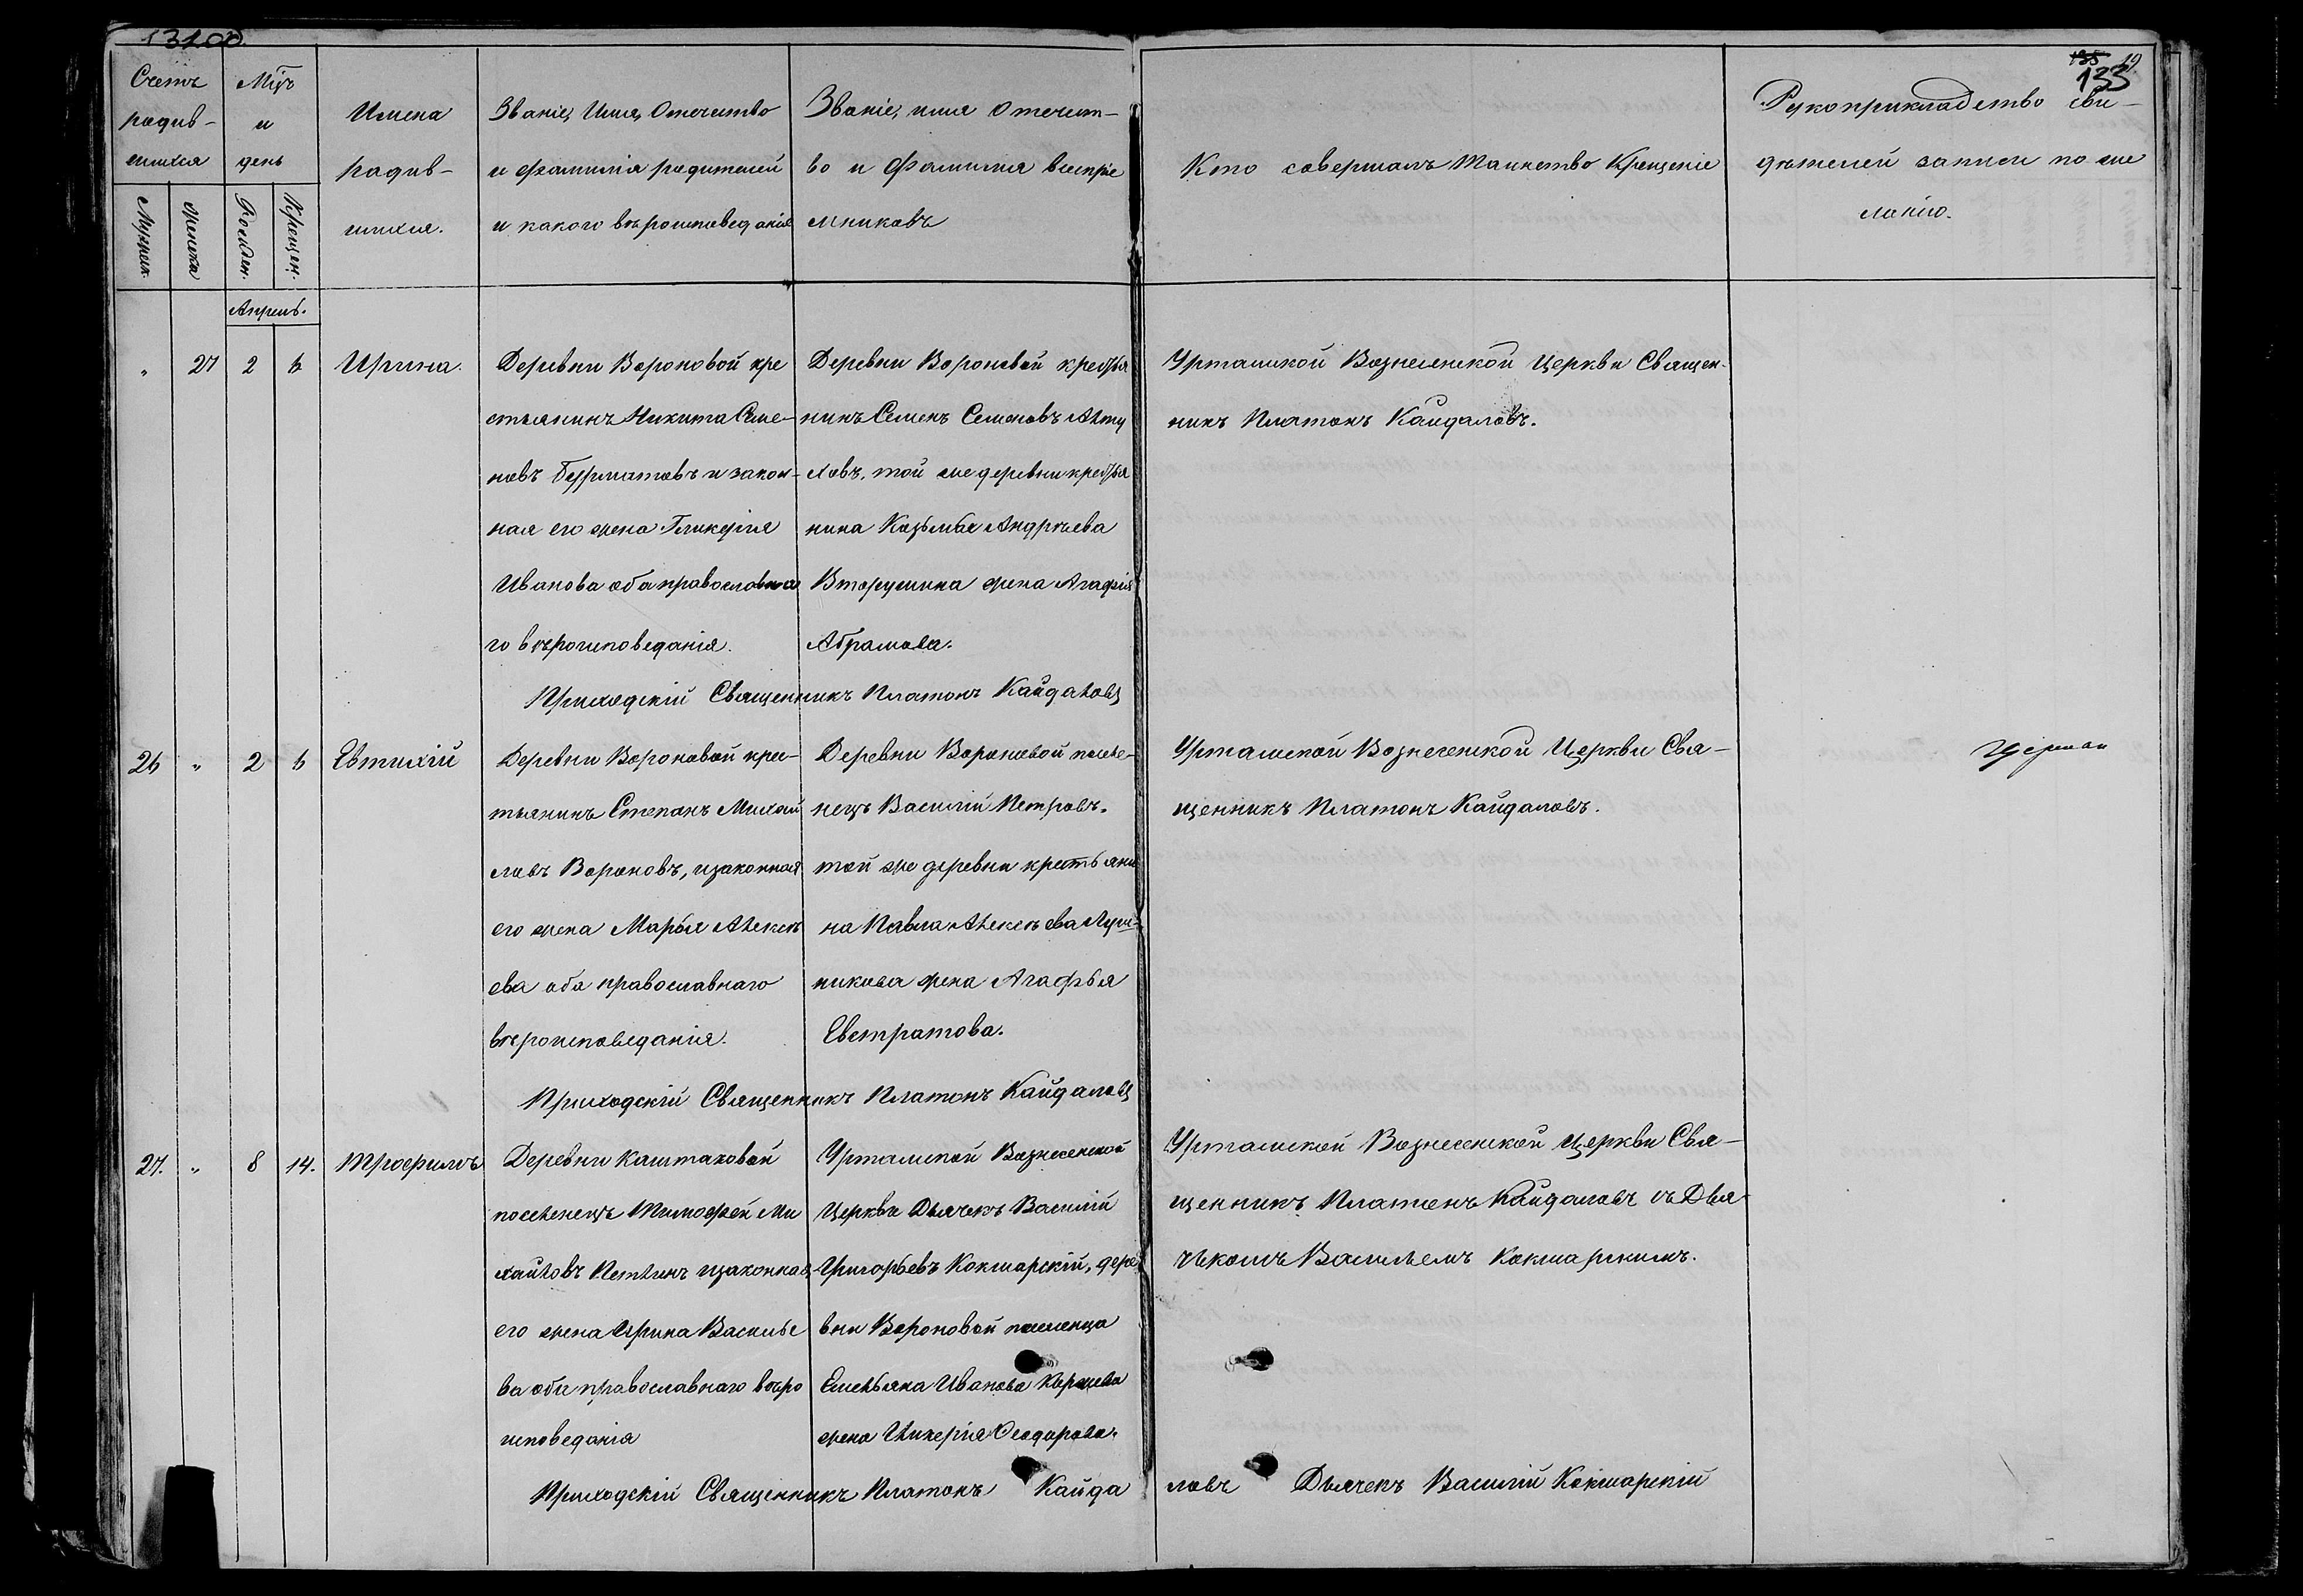 132об.
135 19
133
Счетъ
родив-
шихся
Мужеск.
Женска
Мѣц
и
день
Рожден.
Крещен.
Имена
родив-
шихся.
Званіе, Имя, Отечество
и фамилія родителей
и какого вѣроисповеданія
Званіе, имя отечест-
во и фамилия воспріе
мниковъ
Кто совершалъ таинство Крещенія
Рукоприкладство сви-
дѣтелей записи по же
ланію.
Апрель.
" 27 2 6 Ирина.
Деревни Вороновой кре
стьянинъ Никита Семе-
новъ Бурматовъ и закон-
ная его жена Гликерія
Иванова оба православна
го вѣроисповеданія.
Деревни Вороновой крестья
нинъ Семенъ Семеновъ
ховъ, той же деревни крестья
нина Козьмы Андрѣева
Вторушина жена Агафія
Абрамова.
Урталской Вознесенской Церкви Священ-
никъ Платонъ Кайдаловъ.
Приходскій Священникъ Платонъ Кайдаловъ
26 " 2 6 Евтихій
Деревни Вороновой крес-
тьянинъ Степанъ Михай
ловъ Вороновъ, изаконная
его жена Марья Алексѣ
ева оба православнаго
вѣроисповеданія.
Деревни Вороновой поселе-
нецъ Василій Петровъ.
той же деревни крестьяни
на Павла Алексѣева
никова жена Агафья
Евстратова.
Урталской Вознесенской Церкви Свя-
щенникъ Платонъ Кайдаловъ.
Приходскій Священникъ Платонъ Кайдаловъ
27. " 8 14. Трофимъ
Деревни Каштаковой
поселенецъ Тимофей Ми
хайловъ Петлинъ изаконная
его жена Ирина Василье
ва оба православнаго вѣро
исповеданія
Урталской Вознесенской
Церкви Дьячекъ Василій
Григорьевъ Кокшарскій, дере
вни Вороновой поселенца
Емельяна Иванова
жена Гликерія Феодорова.
Урталской Вознесенской Церкви Свя-
щенникъ Платонъ Кайдаловъ съ Дья-
чькомъ Васильемъ Кокшарскимъ.
Приходскій Священникъ Платонъ Кайда ловъ Дьячекъ Василій Кокшарскій